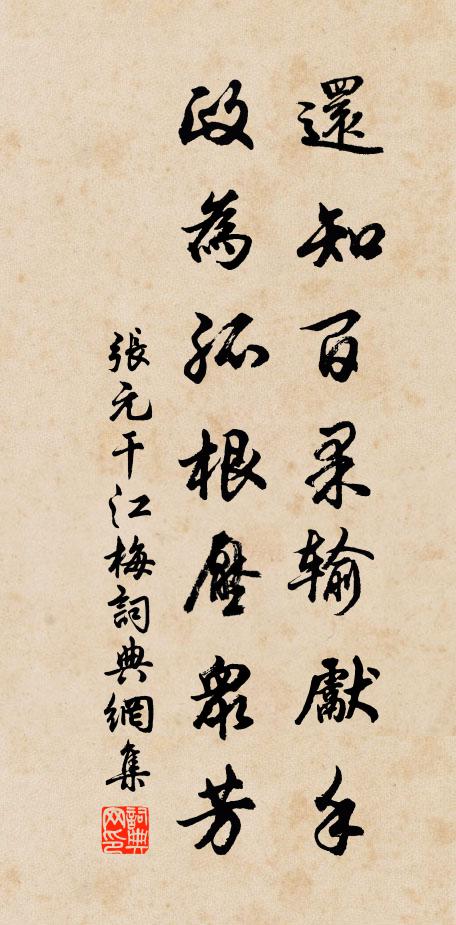 還知百果輸獻手
政為孤根壓衆芳
張元干江梅詞典網集
詞典网印